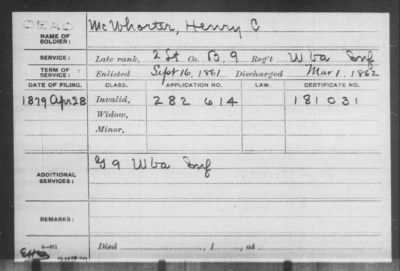 DEAD
NAME OF SOLDIER: McWhorter, Henry C
SERVICE: Late rank, 2 Lt Co. B, 9 Reg't W Va Inf
TERM OF SERVICE: Enlisted Sept 16, 1861 Discharged Mar 1, 1862
DATE OF FILING. CLASS. APPLICATION NO. LAW. CERTIFICATE NO.
1879 Apr 28 Invalid, 282 614 181 031
Widow,
Minor,
ADDITIONAL SERVICES: G 9 W Va Inf
REMARKS:
Died , 1 , at